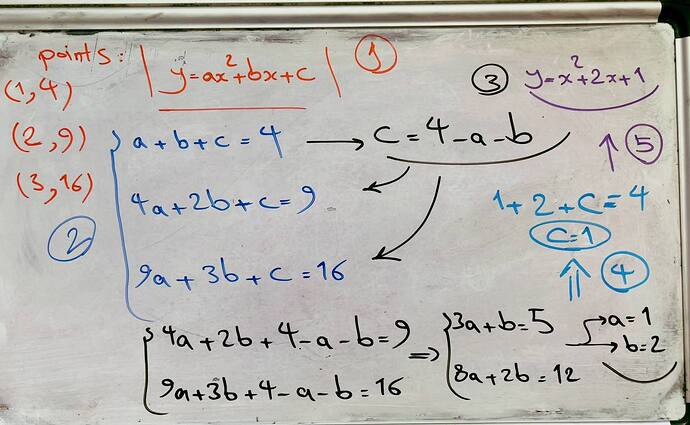 points: y=ax²+bx+c ①
(1,4)
(2,9)
(3,16)
②
a+b+c=4 → c=4-a-b
4a+2b+c=9
9a+3b+c=16
③ y=x²+2x+1
↑ ⑤
1+2+c=4
c=1
⇑ ④
4a+2b+4-a-b=9
9a+3b+4-a-b=16
⇒ 3a+b=5 → a=1
→ b=2
8a+2b=12